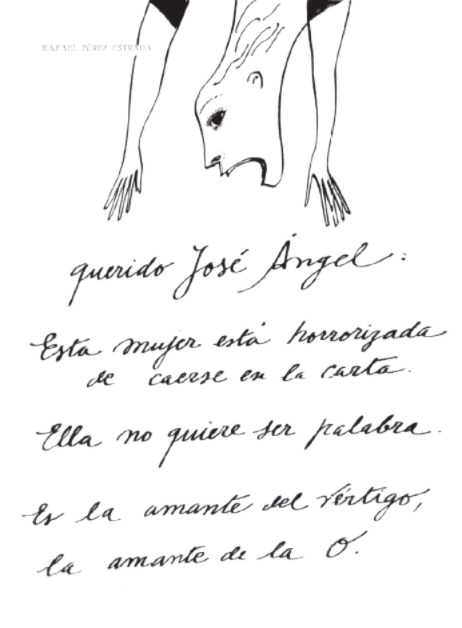 RAFAEL PÉREZ ESTRADA
querido José Ángel:
Esta mujer está horrorizada
de caerse en la carta.
Ella no quiere ser palabra.
Es la amante del vértigo,
la amante de la O.